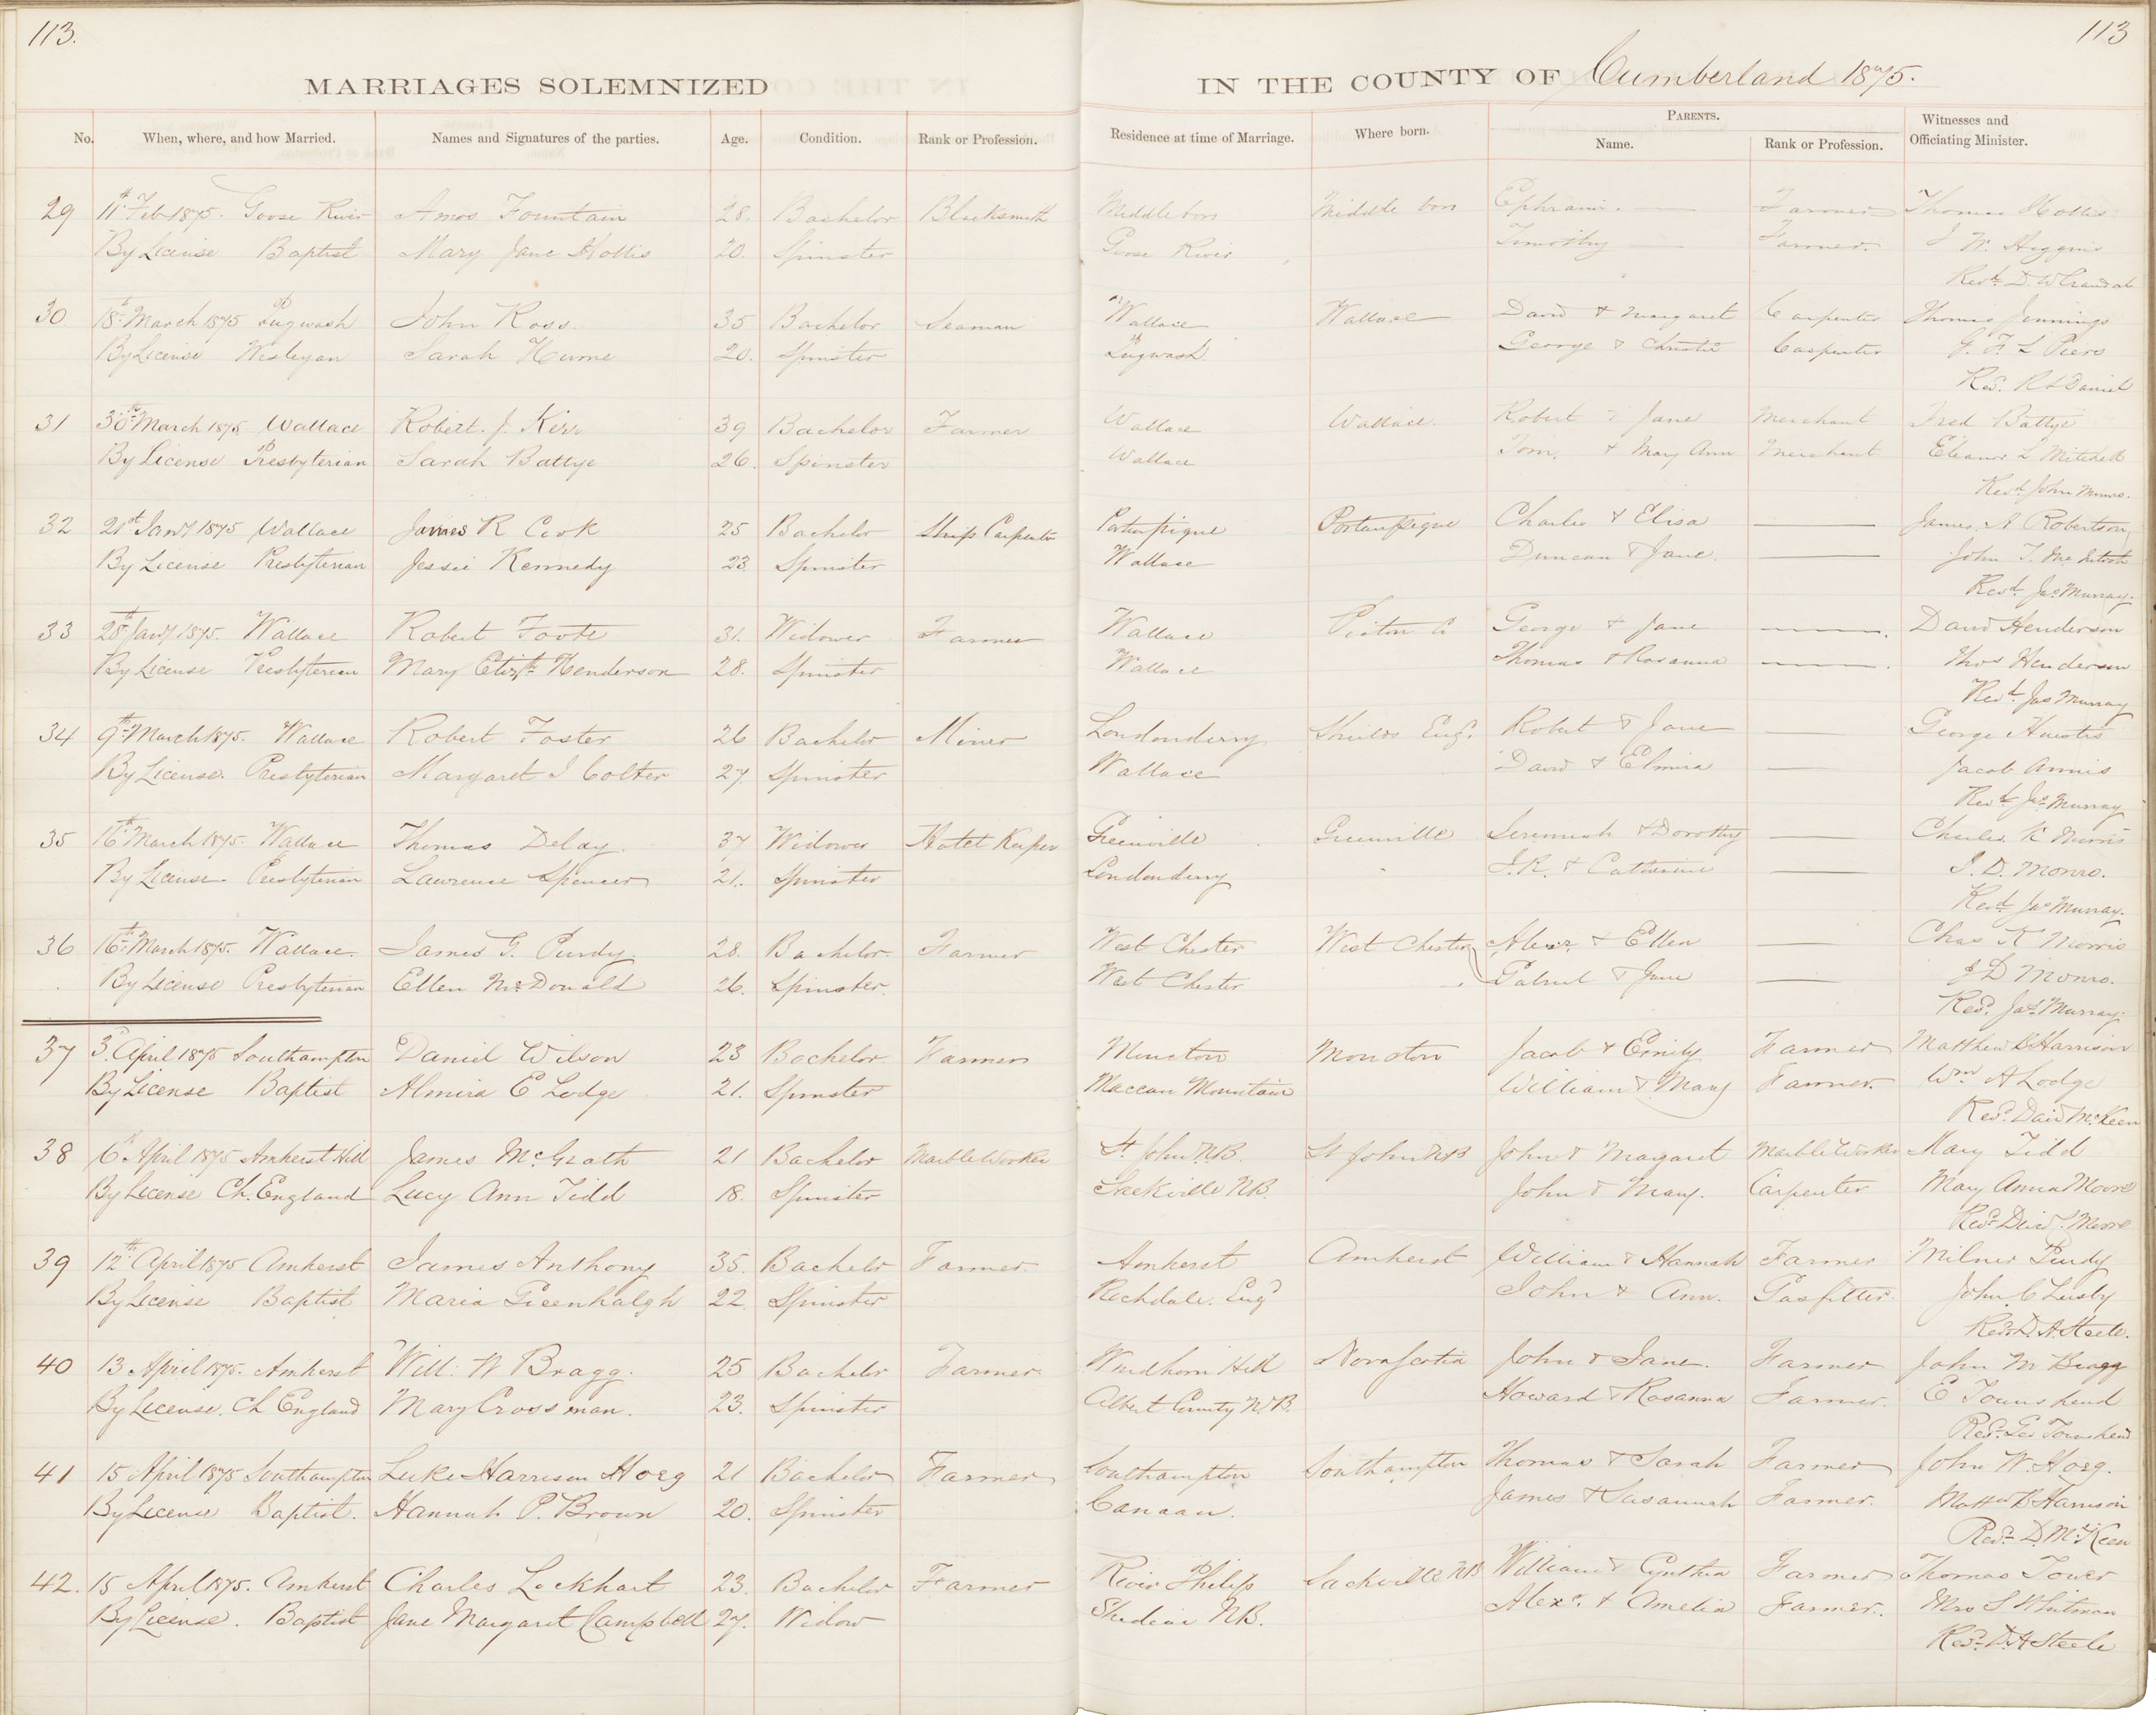 113.
113
MARRIAGES SOLEMNIZED IN THE COUNTY OF Cumberland 1875.
No. When, where, and how Married. Names and Signatures of the parties. Age. Condition. Rank or Profession. Residence at time of Marriage. Where born. PARENTS. Name. Rank or Profession. Witnesses and Officiating Minister.
29 11th Feb 1875. Goose River Amos Fountain 28. Bachelor Blacksmith Middleboro Middle boro Ephraim. Farmer Thomas Hollis
By License Baptist Mary Jane Hollis 20. Spinster Goose River Timothy Farmer. J W. Higgins
Revd. D. W Crandal
30 18th March 1875 Pugwash John Ross. 35 Bachelor Seaman Wallace Wallace David & Margaret Carpenter Thomas Jennings
By License Wesleyan Sarah Hurne 20. Spinster Pugwash George & Christie Carpenter G. F. L Piers
Rev. Daniel
31 30th March 1875 Wallace Robert. J. Kerr 39 Bachelor Farmer Wallace Wallace. Robert & Jane Merchant Fred Battye
By License Presbyterian Sarah Battye 26. Spinster Wallace Tom. & Mary Ann Merchant Eleanor L Mitchell
Revd. John Munro.
32 21st Jany 1875 Wallace James R Cook 25 Bachelor Ship Carpenter Portaupique Portaupique Charles & Elisa James. A Robertson
By License Presbyterian Jessie Kennedy 23. Spinster Wallace Duncan & Jane. John T. McIntosh
Revd. Jas Murray.
33 28th Jany 1875. Wallace Robert Foote 31. Widower Farmer Wallace Picton Co George & Jane David Henderson
By License Presbyterian Mary Elizth Henderson 28. Spinster Wallace Thomas & Rosanna Thos Henderson
Revd. Jas Murray
34 9th March 1875. Wallace Robert Foster 26 Bachelor Miner Londonderry Shields Eng. Robert & Jane George Huestis
By License. Presbyterian Margaret J Colter 27. Spinster Wallace David & Elmira Jacob Annis
Revd. Jas Murray
35 16th March 1875. Wallace Thomas Delay. 37 Widower Hotel Keeper Greenville Greenville Jeremiah & Dorothy Charles K Morris
By License. Presbyterian Lawrence Spencer 21. Spinster Londonderry J. R. & Catherine J. D. Monro.
Revd. Jas Murray.
36 16th March 1875. Wallace. James G. Purdy. 28. Bachelor. Farmer West Chester West Chester Alexr. & Ellen Chas K Morris
By License Presbyterian Ellen McDonald 26. Spinster. West Chester & Jane J D Monro.
Revd. Jas Murray.
37 3d. April 1875 Southampton Daniel Wilson 23 Bachelor Farmer Moncton Moncton Jacob & Emily Farmer Matthew B Harrison
By License Baptist Almira E Lodge 21. Spinster Maccan Mountain William & Mary Farmer. Wm A Lodge
Revd. David McKeen
38 6th April 1875 Amherst Hill James McGrath 21 Bachelor Marble Worker St. John N.B. St John N B John & Margaret Marble Worker Mary Tidd
By License Ch. England Lucy Ann Tidd 18. Spinster Sackville NB. John & Mary. Carpenter Mary Anna Moore
Revd. David. Moore
39 12th April 1875 Amherst James Anthony 35. Bachelor Farmer. Amherst Amherst William & Hannah Farmer Milner Purdy
By License Baptist Maria Greenhalgh 22. Spinster Rochdale. Engd John & Ann. Gasfitter. John C Lusby
Revd. D. A. Steele.
40 13 April 1875. Amherst Will: W Bragg. 25 Bachelor Farmer. Windhorn Hill Nova Scotia John & Jane. Farmer John M Bragg
By License. Ch England Mary Crossman. 23. Spinster Albert County N.B. Howard & Rosanna Farmer. E Townshend
Revd. Geo Townshend
41 15 April 1875 Southampton Luke Harrison Hoeg 21 Bachelor Farmer Southampton Southampton Thomas & Sarah Farmer John W. Hoeg.
By License Baptist. Hannah P. Brown 20. Spinster Canaan. James & Susannah Farmer. Matthew B Harrison
Revd. D. McKeen
42. 15 April 1875. Amherst Charles Lockhart 23. Bachelor Farmer River Philip Sackville NB William & Cynthia Farmer Thomas Tower
By License. Baptist Jane Margaret Campbell 27. Widow Shediac NB. Alexr. & Amelia Farmer. Mrs S Whitman
Revd. D. A Steele